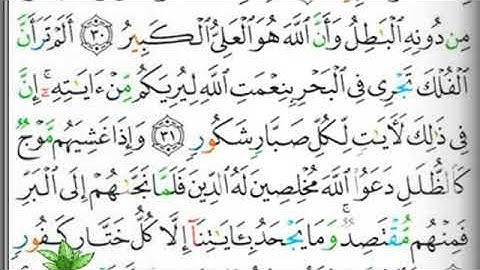 مِن دُونِهِ ٱلْبَٰطِلُ وَأَنَّ ٱللَّهَ هُوَ ٱلْعَلِىُّ ٱلْكَبِيرُ ٣٠ أَلَمْ تَرَ أَنَّ
ٱلْفُلْكَ تَجْرِى فِى ٱلْبَحْرِ بِنِعْمَتِ ٱللَّهِ لِيُرِيَكُم مِّنْ ءَايَٰتِهِۦٓ ۚ إِنَّ
فِى ذَٰلِكَ لَءَايَٰتٍ لِّكُلِّ صَبَّارٍ شَكُورٍ ٣١ وَإِذَا غَشِيَهُم مَّوْجٌ
كَٱلظُّلَلِ دَعَوُا۟ ٱللَّهَ مُخْلِصِينَ لَهُ ٱلدِّينَ فَلَمَّا نَجَّىٰهُمْ إِلَى ٱلْبَرِّ
فَمِنْهُم مُّقْتَصِدٌ ۚ وَمَا يَجْحَدُ بِـَٔايَٰتِنَآ إِلَّا كُلُّ خَتَّارٍ كَفُورٍ